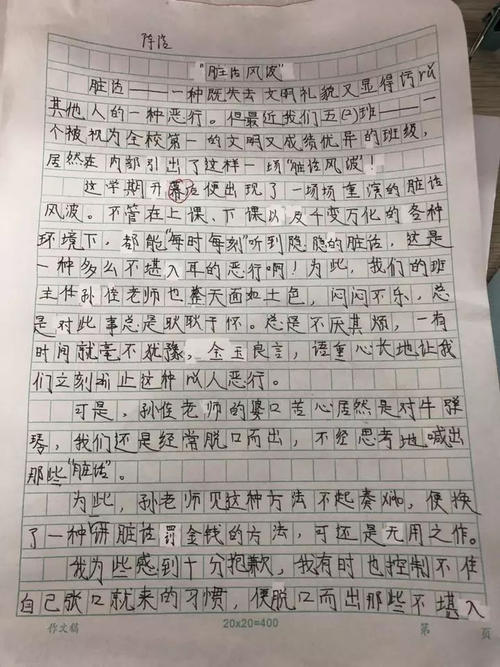 陈洁
“脏话风波”
脏话——一种既失去文明礼貌又显得污以
其他人的一种恶行。但最近我们五(2)班——一
个被视为全校第一的文明又成绩优异的班级，
居然在内部引出了这样一场“脏话风波”！
这学期开幕后便出现了一场场重演的脏话
风波。不管在上课、下课以及千变万化的各种
环境下，都能“每时每刻”听到隐隐的脏话，这是
一种多么不堪入耳的恶行啊！为此，我们的班
主任孙佳老师也整天面如土色，闷闷不乐，总
是对此事总是耿耿于怀。总是不厌其烦，一有
时间就毫不犹豫，金玉良言，语重心长地让我
们立刻断止这种以人恶行。
可是，孙佳老师的婆口苦心居然是对牛弹
琴，我们还是经常脱口而出，不经思考地喊出
那些“脏话”。
为此，孙老师见这种方法不起奏效，便换
了一种讲脏话罚金钱的方法，可还是无用之作。
我为些感到十分抱歉，我有时也控制不住
自己张口就来的习惯，便脱口而出那些不堪入
作文稿 20×20=400 第 页